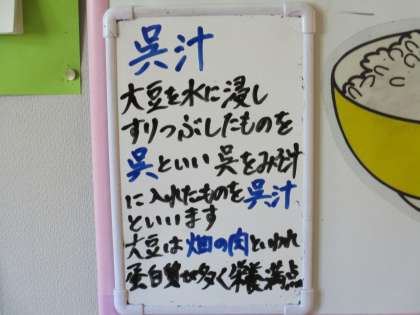 呉汁
大豆を水に浸し
すりつぶしたものを
呉といい呉をみそ汁
に入れたものを呉汁
といいます
大豆は畑の肉といわれ
蛋白質が多く栄養満点